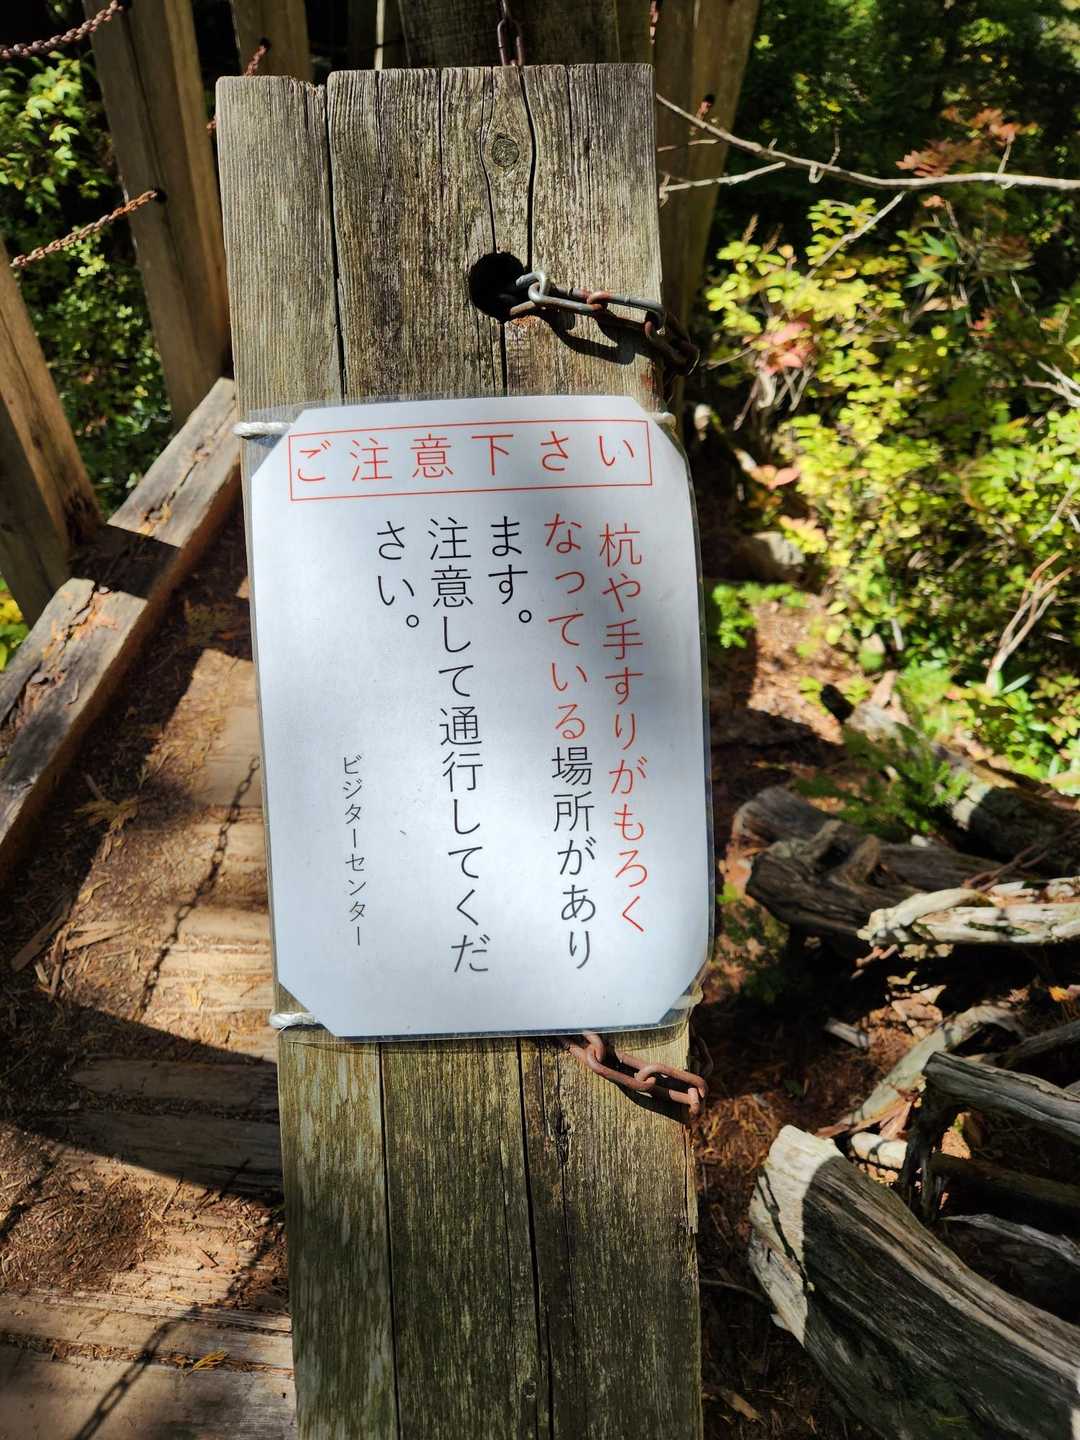 ご注意下さい
杭や手すりがもろく
なっている場所があり
ます。
注意して通行してくだ
さい。
ビジターセンター